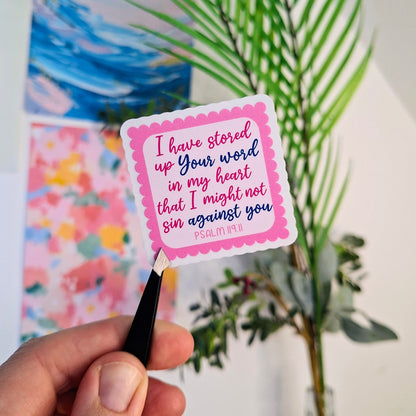 I have stored
up Your word
in my heart
that I might not
sin against you
PSALM 119:11